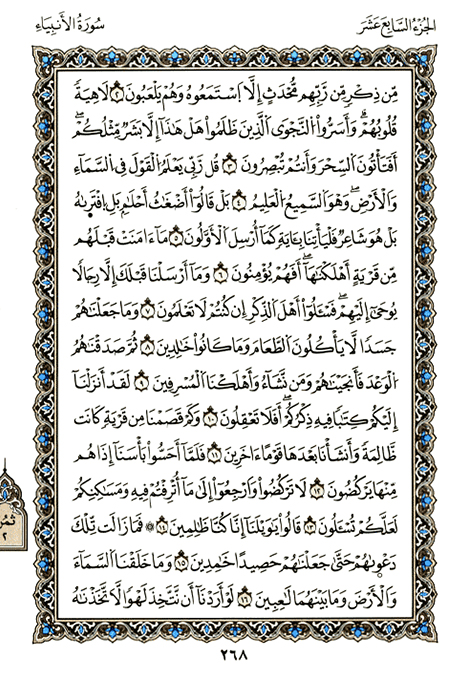 الجزء السابع عشر
سورة الأنبياء
مِّن ذِكْرٍ مِّن رَّبِّهِم مُّحْدَثٍ إِلَّا اَسْتَمَعُوهُ وَهُمْ يَلْعَبُونَ ٢ لَاهِيَةً
قُلُوبُهُمْ وَأَسَرُّواْ النَّجْوَى الَّذِينَ ظَلَمُواْ هَلْ هَٰذَا إِلَّا بَشَرٌ مِّثْلُكُمْ
أَفَتَأْتُونَ السِّحْرَ وَأَنتُمْ تُبْصِرُونَ ٣ قُل رَّبِّي يَعْلَمُ الْقَوْلَ فِي السَّمَآءِ
وَالْأَرْضِ وَهُوَ السَّمِيعُ الْعَلِيمُ ٤ بَلْ قَالُواْ أَضْغَٰثُ أَحْلَٰمٍ بَلِ اِفْتَرَىٰهُ
بَلْ هُوَ شَاعِرٌ فَلْيَأْتِنَا بِـَٔايَةٍ كَمَآ أُرْسِلَ الْأَوَّلُونَ ٥ مَآ ءَامَنَتْ قَبْلَهُم
مِّن قَرْيَةٍ أَهْلَكْنَٰهَآ أَفَهُمْ يُؤْمِنُونَ ٦ وَمَآ أَرْسَلْنَا قَبْلَكَ إِلَّا رِجَالًا
يُوحَىٰٓ إِلَيْهِمْ فَسْـَٔلُوٓاْ أَهْلَ الذِّكْرِ إِن كُنتُمْ لَا تَعْلَمُونَ ٧ وَمَا جَعَلْنَٰهُمْ
جَسَدًا لَّا يَأْكُلُونَ الطَّعَامَ وَمَا كَانُواْ خَٰلِدِينَ ٨ ثُمَّ صَدَقْنَٰهُمُ
الْوَعْدَ فَأَنجَيْنَٰهُمْ وَمَن نَّشَآءُ وَأَهْلَكْنَا الْمُسْرِفِينَ ٩ لَقَدْ أَنزَلْنَآ
إِلَيْكُمْ كِتَٰبًا فِيهِ ذِكْرُكُمْ أَفَلَا تَعْقِلُونَ ١٠ وَكَمْ قَصَمْنَا مِن قَرْيَةٍ كَانَت
ظَّالِمَةً وَأَنشَأْنَا بَعْدَهَا قَوْمًا ءَاخَرِينَ ١١ فَلَمَّآ أَحَسُّواْ بَأْسَنَآ إِذَا هُم
مِّنْهَا يَرْكُضُونَ ١٢ لَا تَرْكُضُواْ وَارْجِعُوٓاْ إِلَىٰ مَآ أُتْرِفْتُمْ فِيهِ وَمَسَٰكِنِكُمْ
لَعَلَّكُمْ تُسْـَٔلُونَ ١٣ قَالُواْ يَٰوَيْلَنَآ إِنَّا كُنَّا ظَٰلِمِينَ ١٤ ۞ فَمَا زَالَت تِّلْكَ
دَعْوَىٰهُمْ حَتَّىٰ جَعَلْنَٰهُمْ حَصِيدًا خَٰمِدِينَ ١٥ وَمَا خَلَقْنَا السَّمَآءَ
وَالْأَرْضَ وَمَا بَيْنَهُمَا لَٰعِبِينَ ١٦ لَوْ أَرَدْنَآ أَن نَّتَّخِذَ لَهْوًا لَّاتَّخَذْنَٰهُ
ثمن
٢
٢٦٨